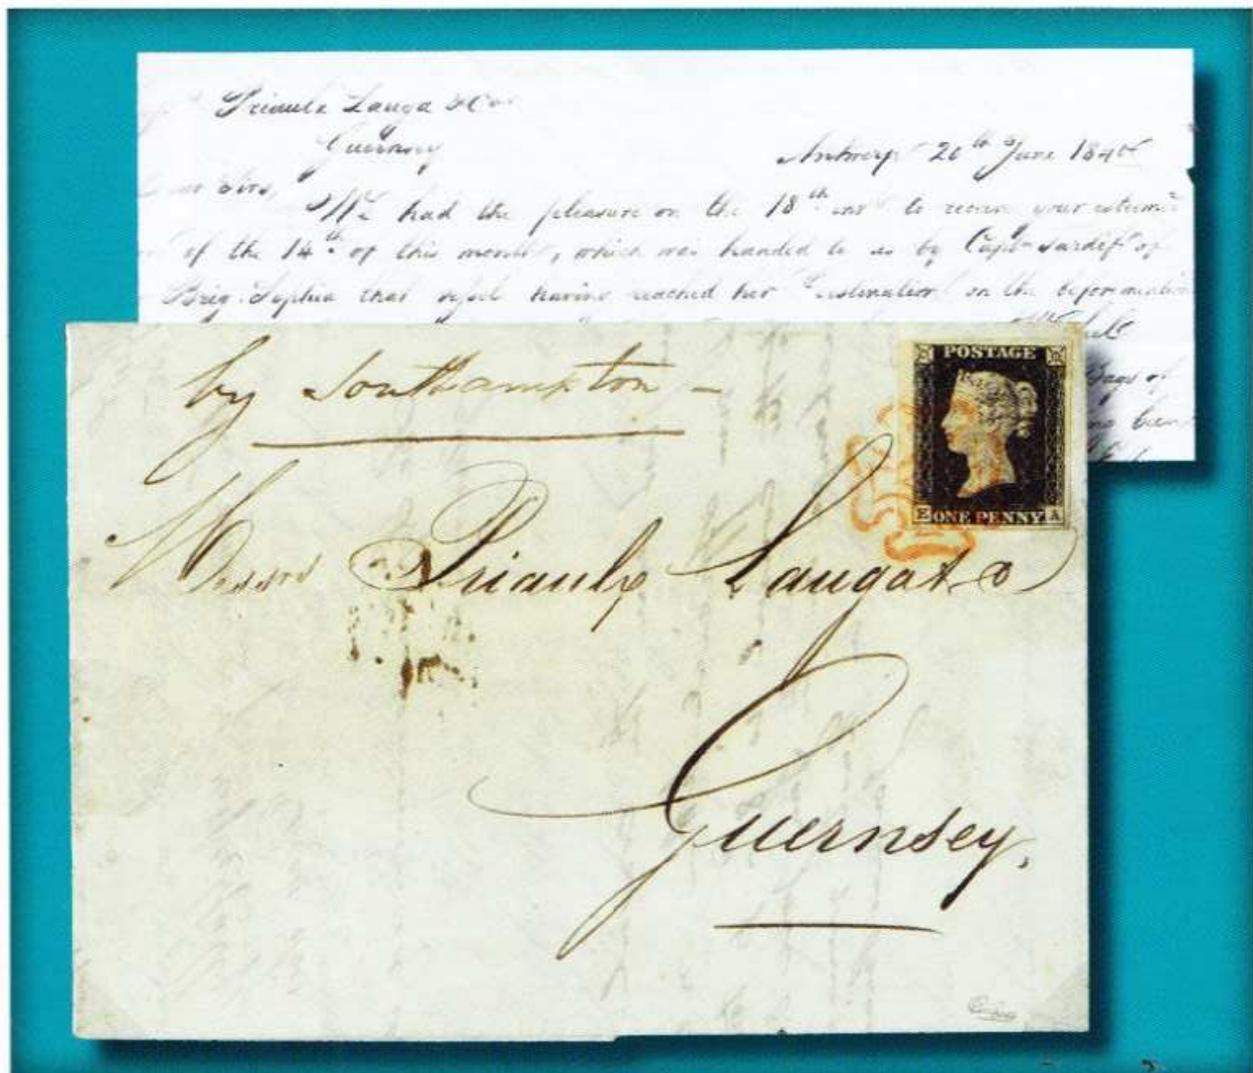 Priaulx Lauga & Co
Guernsey
Antwerp 20th June 1840
Dear Sirs,
We had the pleasure on the 18th inst to receive your esteemed
of the 14th of this month, which was handed to us by Captn of
Brig Sophia that vessel having reached her destination on the beforemention
Bags of
been
by Southampton -
POSTAGE
E ONE PENNY A
Messrs Priaulx Lauga & Co
Guernsey.